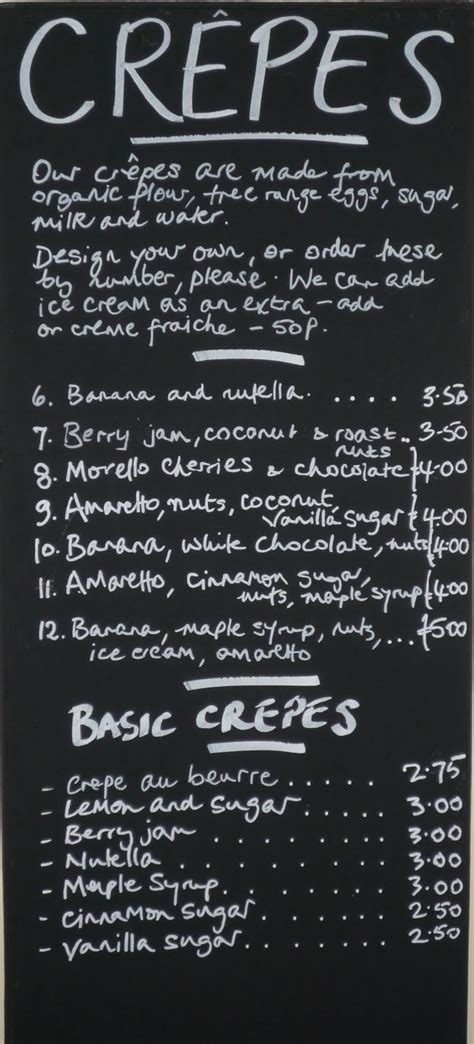 CRÊPES
Our crêpes are made from
organic flour, free range eggs, sugar,
milk and water.
Design your own, or order these
by number, please. We can add
ice cream as an extra – add
or crème fraiche – 50p.
6. Banana and nutella. .... 3.50
7. Berry jam, coconut & roast .. 3.50
nuts
8. Morello cherries & chocolate £4.00
9. Amaretto, nuts, coconut,
Vanilla sugar £4.00
10. Banana, white chocolate, nuts £4.00
11. Amaretto, cinnamon sugar,
nuts, maple syrup £4.00
12. Banana, maple syrup, nuts, ... £5.00
ice cream, amaretto
BASIC CREPES
- Crepe au beurre ..... 2.75
- Lemon and sugar ..... 3.00
- Berry jam ....... 3.00
- Nutella ........ 3.00
- Maple Syrup. ...... 3.00
- Cinnamon sugar. ..... 2.50
- Vanilla sugar. ..... 2.50